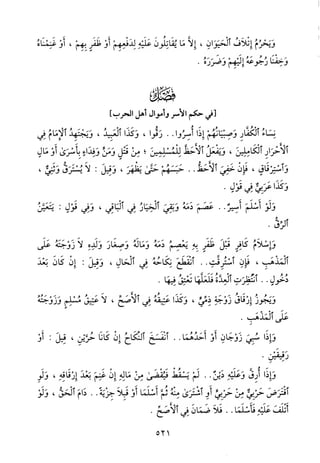 وَيَحْرُمُ إِتْلَافُ الْحَيَوَانِ ، إِلَّا مَا يُقَاتِلُونَ عَلَيْهِ لِدَفْعِهِمْ أَوْ ظَفَرٍ بِهِمْ ، أَوْ غَنِمْنَاهُ
وَخِفْنَا رُجُوعَهُ إِلَيْهِمْ وَضَرَرَهُ .
فَصْلٌ
[في حكم الأسر وأموال أهل الحرب]
نِسَاءُ الْكُفَّارِ وَصِبْيَانُهُمْ إِذَا أُسِرُوا . . رُقُّوا ، وَكَذَا الْعَبِيدُ ، وَيَجْتَهِدُ الْإِمَامُ فِي
الْأَحْرَارِ الْكَامِلِينَ ، وَيَفْعَلُ الْأَحَظَّ لِلْمُسْلِمِينَ ؛ مِنْ قَتْلٍ وَمَنٍّ وَفِدَاءٍ بِأَسْرَى أَوْ مَالٍ
وَاسْتِرْقَاقٍ ، فَإِنْ خَفِيَ الْأَحَظُّ . . حَبَسَهُمْ حَتَّى يَظْهَرَ ، وَقِيلَ : لَا يُسْتَرَقُّ وَثَنِيٌّ ،
وَكَذَا عَرَبِيٌّ فِي قَوْلٍ .
وَلَوْ أَسْلَمَ أَسِيرٌ . . عَصَمَ دَمَهُ وَبَقِيَ الْخِيَارُ فِي الْبَاقِي ، وَفِي قَوْلٍ : يَتَعَيَّنُ
الرِّقُّ .
وَإِسْلَامُ كَافِرٍ قَبْلَ ظَفَرٍ بِهِ يَعْصِمُ دَمَهُ وَمَالَهُ وَصِغَارَ وَلَدِهِ لَا زَوْجَتَهُ عَلَى
الْمَذْهَبِ ، فَإِنِ اسْتُرِقَّتْ . . انْقَطَعَ نِكَاحُهُ فِي الْحَالِ ، وَقِيلَ : إِنْ كَانَ بَعْدَ
دُخُولٍ . . انْتُظِرَتِ الْعِدَّةُ فَلَعَلَّهَا تَعْتِقُ فِيهَا .
وَيَجُوزُ إِرْقَاقُ زَوْجَةِ ذِمِّيٍّ ، وَكَذَا عَتِيقُهُ فِي الْأَصَحِّ ، لَا عَتِيقُ مُسْلِمٍ وَزَوْجَتُهُ
عَلَى الْمَذْهَبِ .
وَإِذَا سُبِيَ زَوْجَانِ أَوْ أَحَدُهُمَا . . انْفَسَخَ النِّكَاحُ إِنْ كَانَا حُرَّيْنِ ، قِيلَ : أَوْ
رَقِيقَيْنِ .
وَإِذَا أُرِقَّ وَعَلَيْهِ دَيْنٌ . . لَمْ يَسْقُطْ فَيُقْضَى مِنْ مَالِهِ إِنْ غُنِمَ بَعْدَ إِرْقَاقِهِ ، وَلَوِ
اقْتَرَضَ حَرْبِيٌّ مِنْ حَرْبِيٍّ أَوِ اشْتَرَى مِنْهُ ثُمَّ أَسْلَمَا أَوْ قَبِلَا جِزْيَةً . . دَامَ الْحَقُّ ، وَلَوْ
أَتْلَفَ عَلَيْهِ فَأَسْلَمَا . . فَلَا ضَمَانَ فِي الْأَصَحِّ .
٥٢١